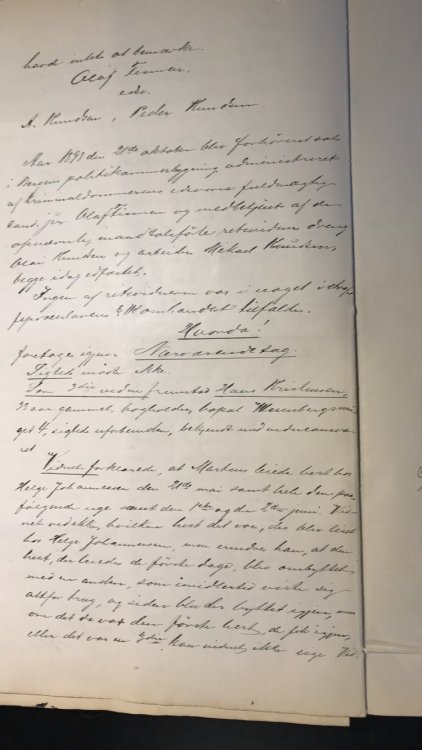 havde intet at bemærke.
Olaf Finnen,
edv.
A. Knudsen, Peder Knudsen
Aar 1893 den 21de oktober blev forhörsret sat
i Bergen politikammerbygning administreret
af kriminaldommerens edsvorne fuldmægtig
cand. jur. Olaf Finnen og medbetjent af den
mandtalsförte retsvidner
Olai Knudsen og arbeider Mikael Knudsen,
begge idag edfæstet.
Ingen af retsvidnerne var i noget i straffe-
peroceslovens § omhandlet tilfælde.
Hvorda!
foretoges igjen Nærværende sag.
Sigtede mödte ikke.
Som 3die vidne fremstod Hans
33 aar gammel, bogholder, bopæl
4, sigtede uforbunden, bekjendt med vidneansva-
ret
Vidnet forklarede, at Martens leiede hest hos
Helge Johannesen den 21de mai samt hele den paa-
følgende uge samt den 1ste og den 2den juni. Vid-
net ved ikke, hvilken hest det var, der blev leiet
hos Helge Johannesen, men erindrer han, at den
hest, der leiedes de förste dage, blev ombyttet
med en anden, som imidlertid viste sig
altfor trag, og siden blev der byttet igjen, men
om det da var den förste hest, de fik igjen,
eller det var en 3die, kan vidnet ikke sige. Vid-